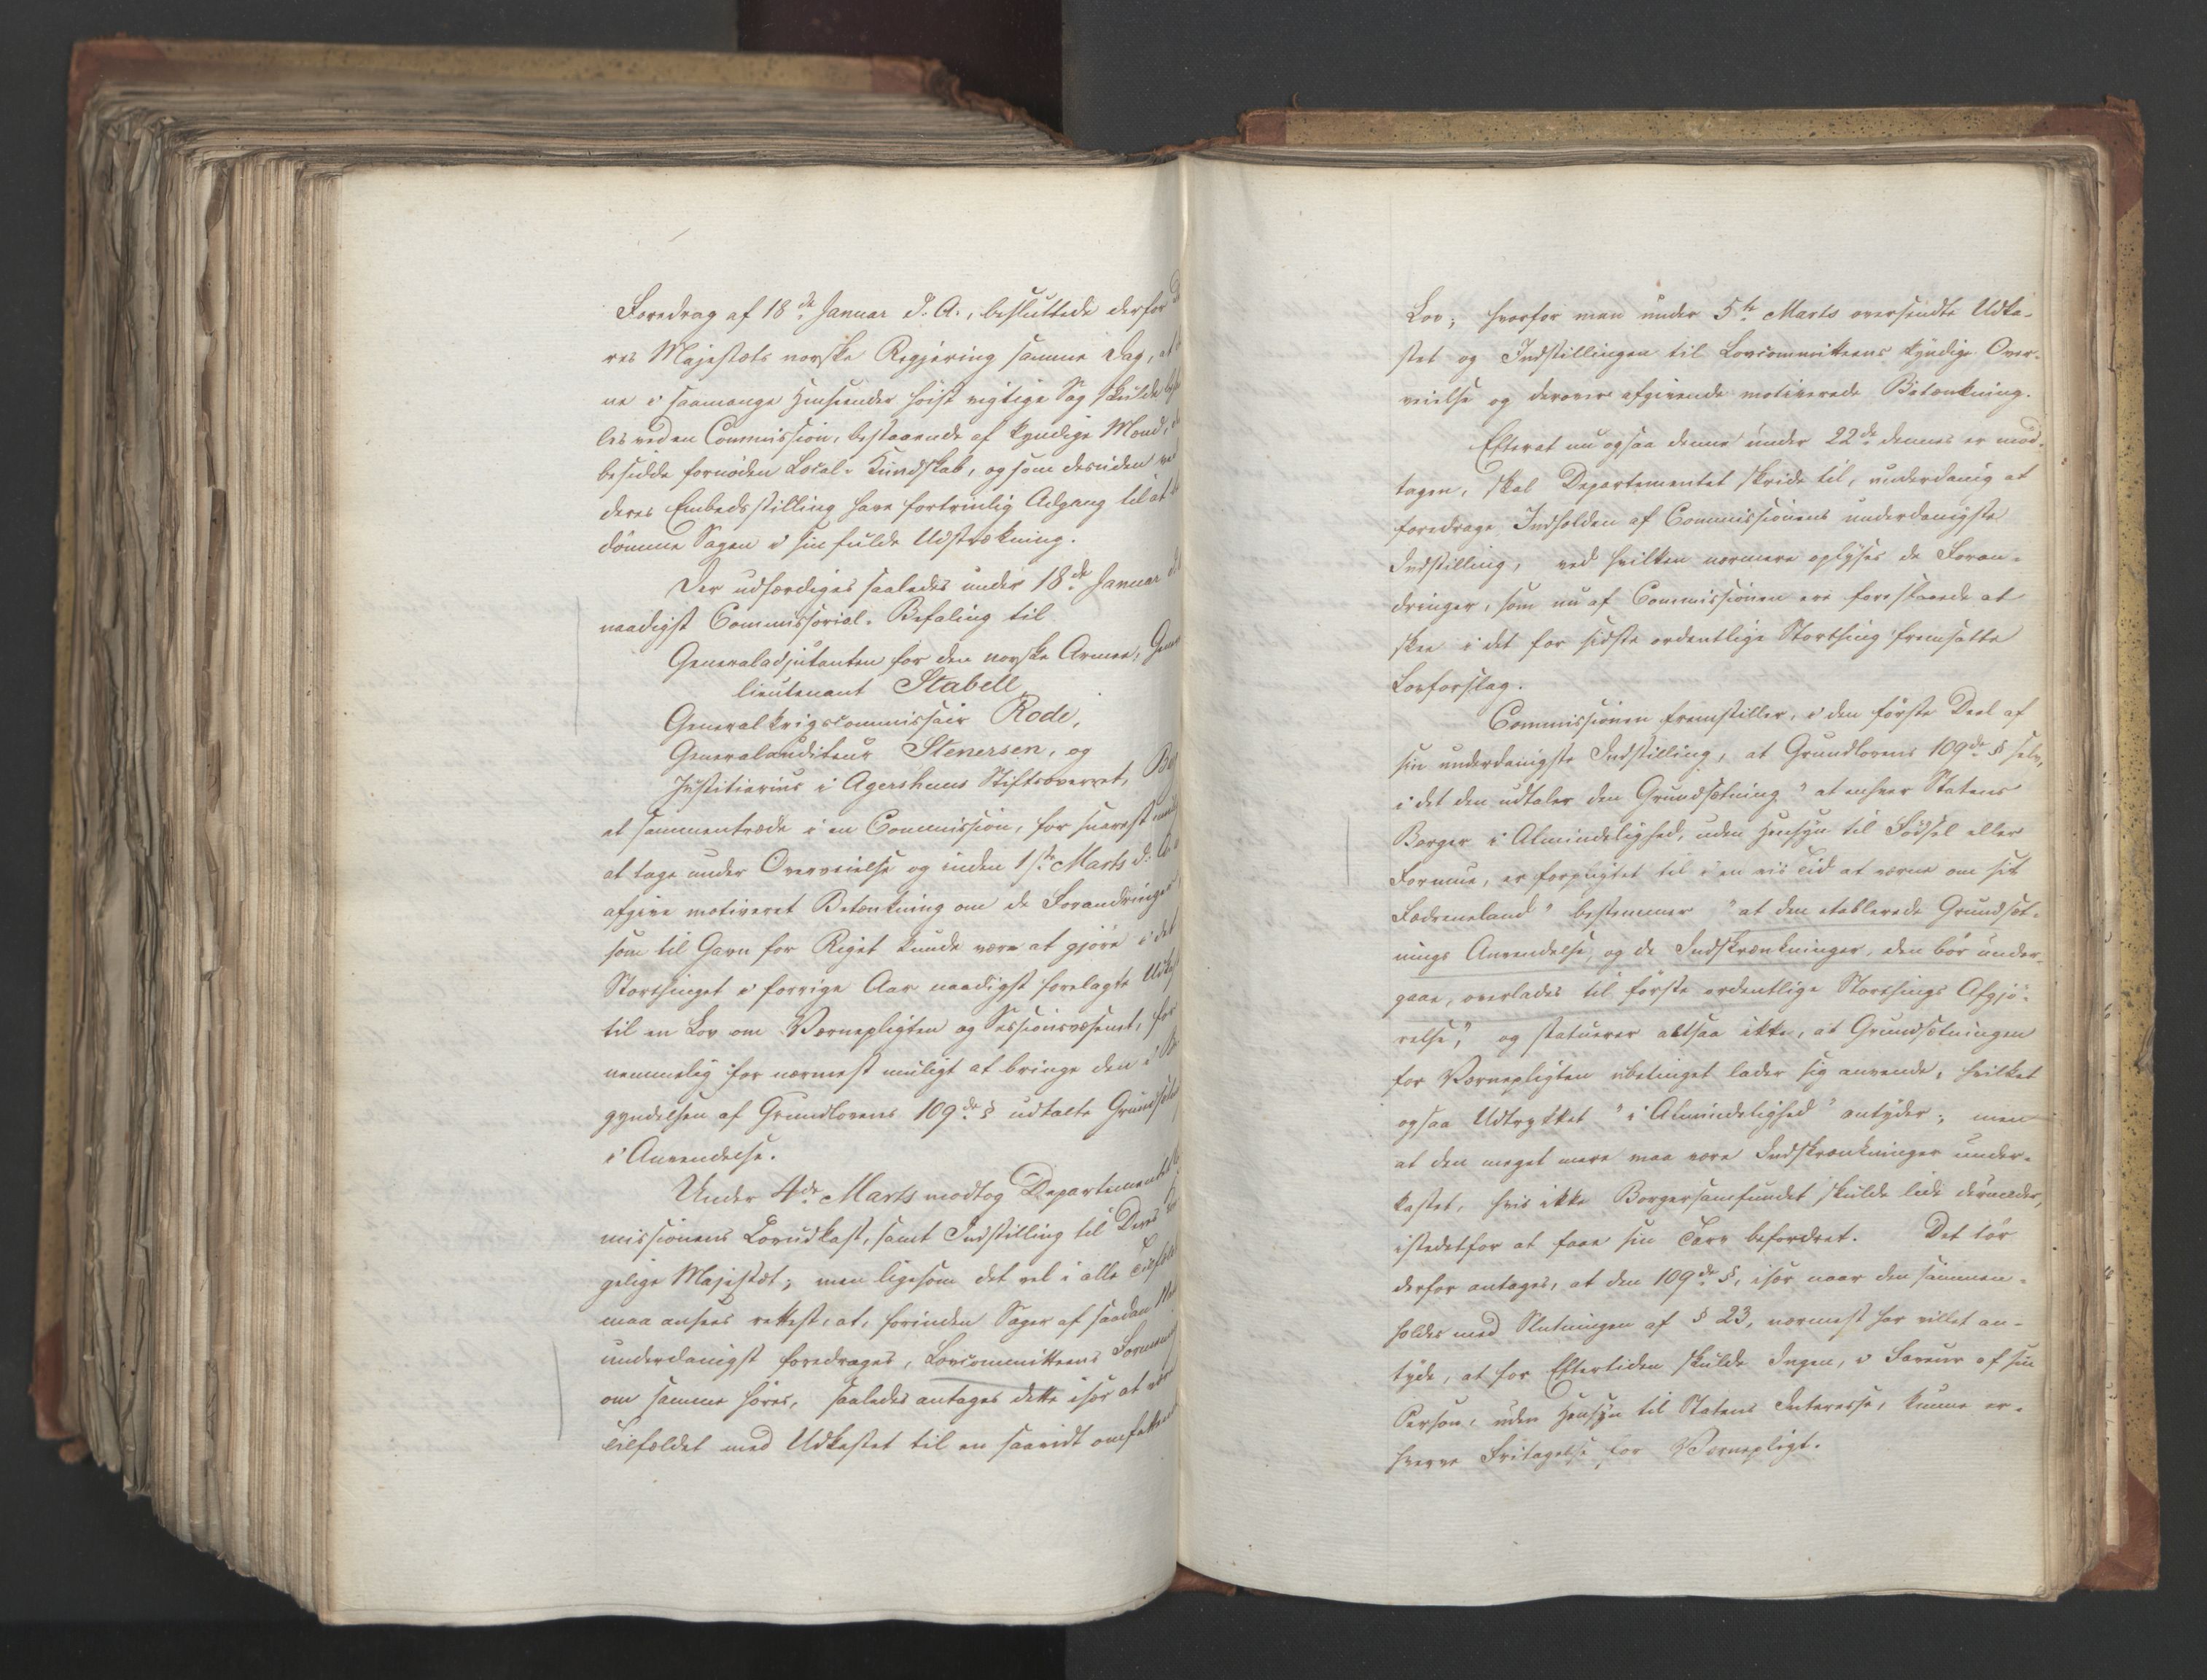 Foredrag af 18de Januar d. A., besluttede derfor
res Majestæts norske Regjering samme Dag, at
ne i saamange Henseender høist vigtige Sag skulde
les ved en Commission, bestaaende af kyndige Mænd,
besidde fornøden Local-Kundskab, og som desuden ved
deres Embedsstilling have fortrinlig Adgang til at
dømme Sagen i sin fulde Udstrækning.
Der udfærdiges saaledes under 18de Januar
naadigst Commissorial-Befaling til
Generaladjutanten for den norske Armee,
lieutenant Stabell,
Generalkrigscommissair Rode,
Generalauditeur Stenersen, og
Justitiarius i Agershuus Stiftsoverret,
at sammentræde i en Commission, for snarest
at tage under Overveielse og inden 1ste Marts d. A.
afgive motiveret Betænkning om de Forandringer
som til Gavn for Riget kunde være at gjøre i det
Storthinget i forrige Aar naadigst forelagte
til en Lov om Værnepligten og Sessionsvæsenet, for
nemmelig for nærmest muligt at bringe den i
gyndelsen af Grundlovens 109de § udtalte
i Anvendelse.
Under 4de Marts modtog Departementet
missionens Lovudkast, samt Indstilling til Deres
gelige Majestæt; men ligesom det vel i alle
maa ansees rettest, at, forinden Sager af saadan
underdanigst foredrages, Lovcommitteens
om samme høres, saaledes antages dette især at
Tilfældet med Udkastet til en saavidt omfattende
Lov; hvorfor man under 5te Marts oversendte Udka-
stet og Indstillingen til Lovcommitteens kyndige Over-
veielse og derover afgivende motiverede Betænkning.
Efterat nu ogsaa denne under 22de dennes er mod-
tagen, skal Departementet skride til, underdanig at
foredrage Indholden af Commissionens underdanigste
Indstilling, ved hvilken nærmere oplyses de Foran-
dringer, som nu af Commissionen ere foreslaaede at
skee i det for sidste ordentlige Storthing fremsatte
Lovforslag.
Commissionen fremstiller, i den første Deel af
sin underdanigste Indstilling, at Grundlovens 109de § selv,
i det den udtaler den Grundsætning "at enhver Statens
Borger i Almindelighed, uden Hensyn til Fødsel eller
Formue, er forpligtet til i en vis Tid at værne om sit
Fædreneland" bestemmer "at den etablerede Grundsæt-
nings Anvendelse, og de Indskrænkninger, den bør under-
gaae, overlades til første ordentlige Storthings Afgjø-
relse," og statuerer altsaa ikke, at Grundsætningen
for Værnepligten ubetinget lader sig anvende, hvilket
ogsaa Udtrykket "i Almindelighed" antyder; men
at den meget mere maa være Indskrænkninger under-
kastet, hvis ikke Borgersamfundet skulde lide derunder,
istedetfor at faae sin Tarv befordret. Det tør
derfor antages, at den 109de §, især naar den sammen-
holdes med Slutningen af § 23, nærmest har villet an-
tyde, at for Eftertiden skulde Ingen, i Faveur af sin
Person, uden Hensyn til Statens Interesse, kunne er-
hverve Fritagelse for Værnepligt.